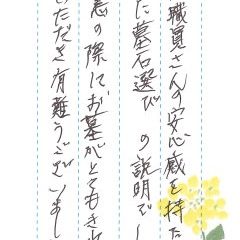 職員さんの安心感を持た
た墓石選び の説明でし
急の際にお墓がとてもきれ
いただき有難うございまし